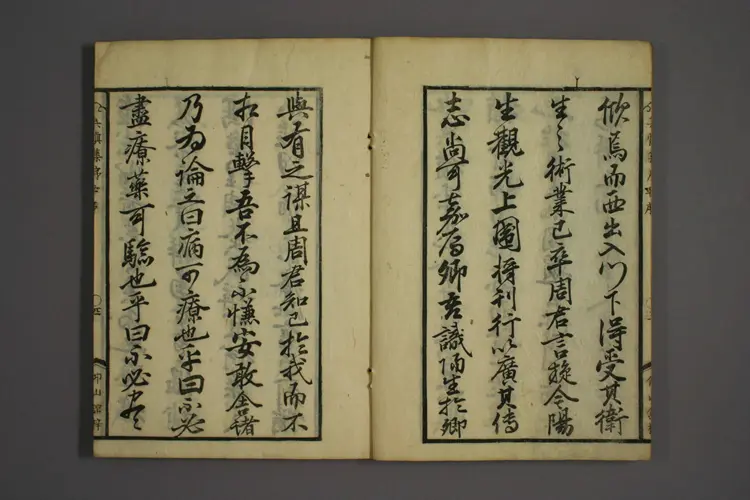 欣焉而西出入門下得受其術
生之術業已卒周君言旋今陽
生觀光上國将刊行以廣其傳
志尚可嘉焉卿吾識陽生於卿
與有之謀且周君知已於我而不
相目擊吾不為不慊安敢舍諸
乃為論之曰病可療也乎曰不必
盡療藥可驗也乎曰不必盡